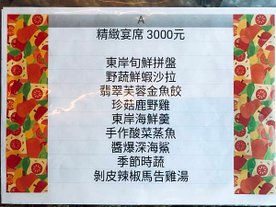 A
精緻宴席 3000元
東岸旬鮮拼盤
野蔬鮮蝦沙拉
翡翠芙蓉金魚餃
珍菇鹿野雞
東岸海鮮羹
手作酸菜蒸魚
醬爆深海鯊
季節時蔬
剝皮辣椒馬告雞湯